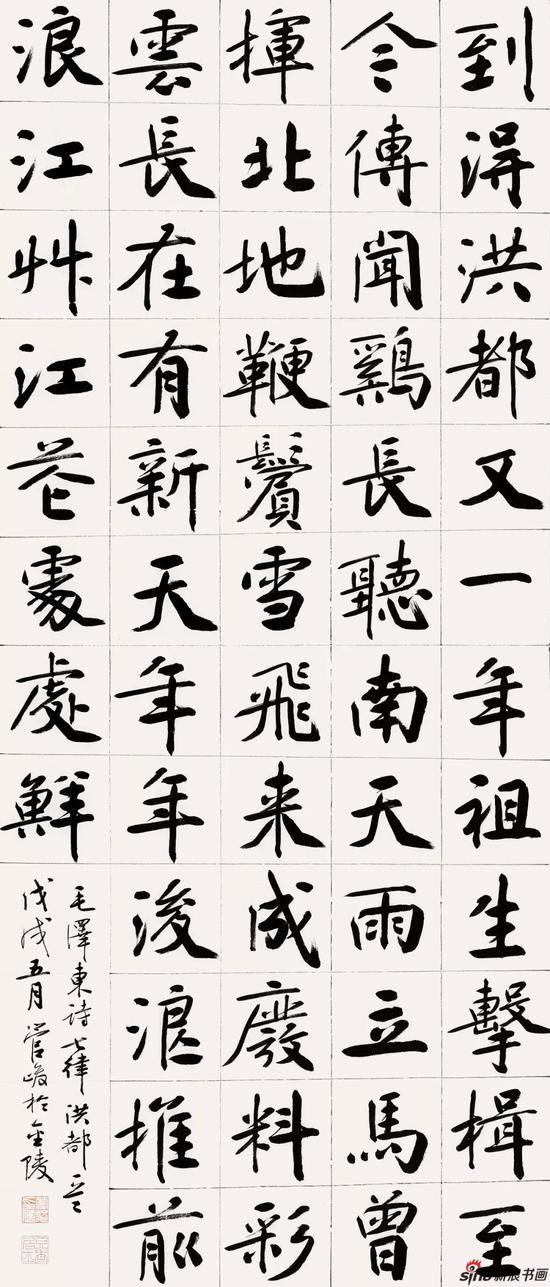 到得洪都又一年祖生擊楫至
今傳聞鷄長聽南天雨立馬曾
揮北地鞭鬢雪飛来成廢料彩
雲長在有新天年年後浪推前
浪江艸江花處處鮮
毛澤東詩七律洪都
戊戌五月管峻於金陵
sina新浪书画